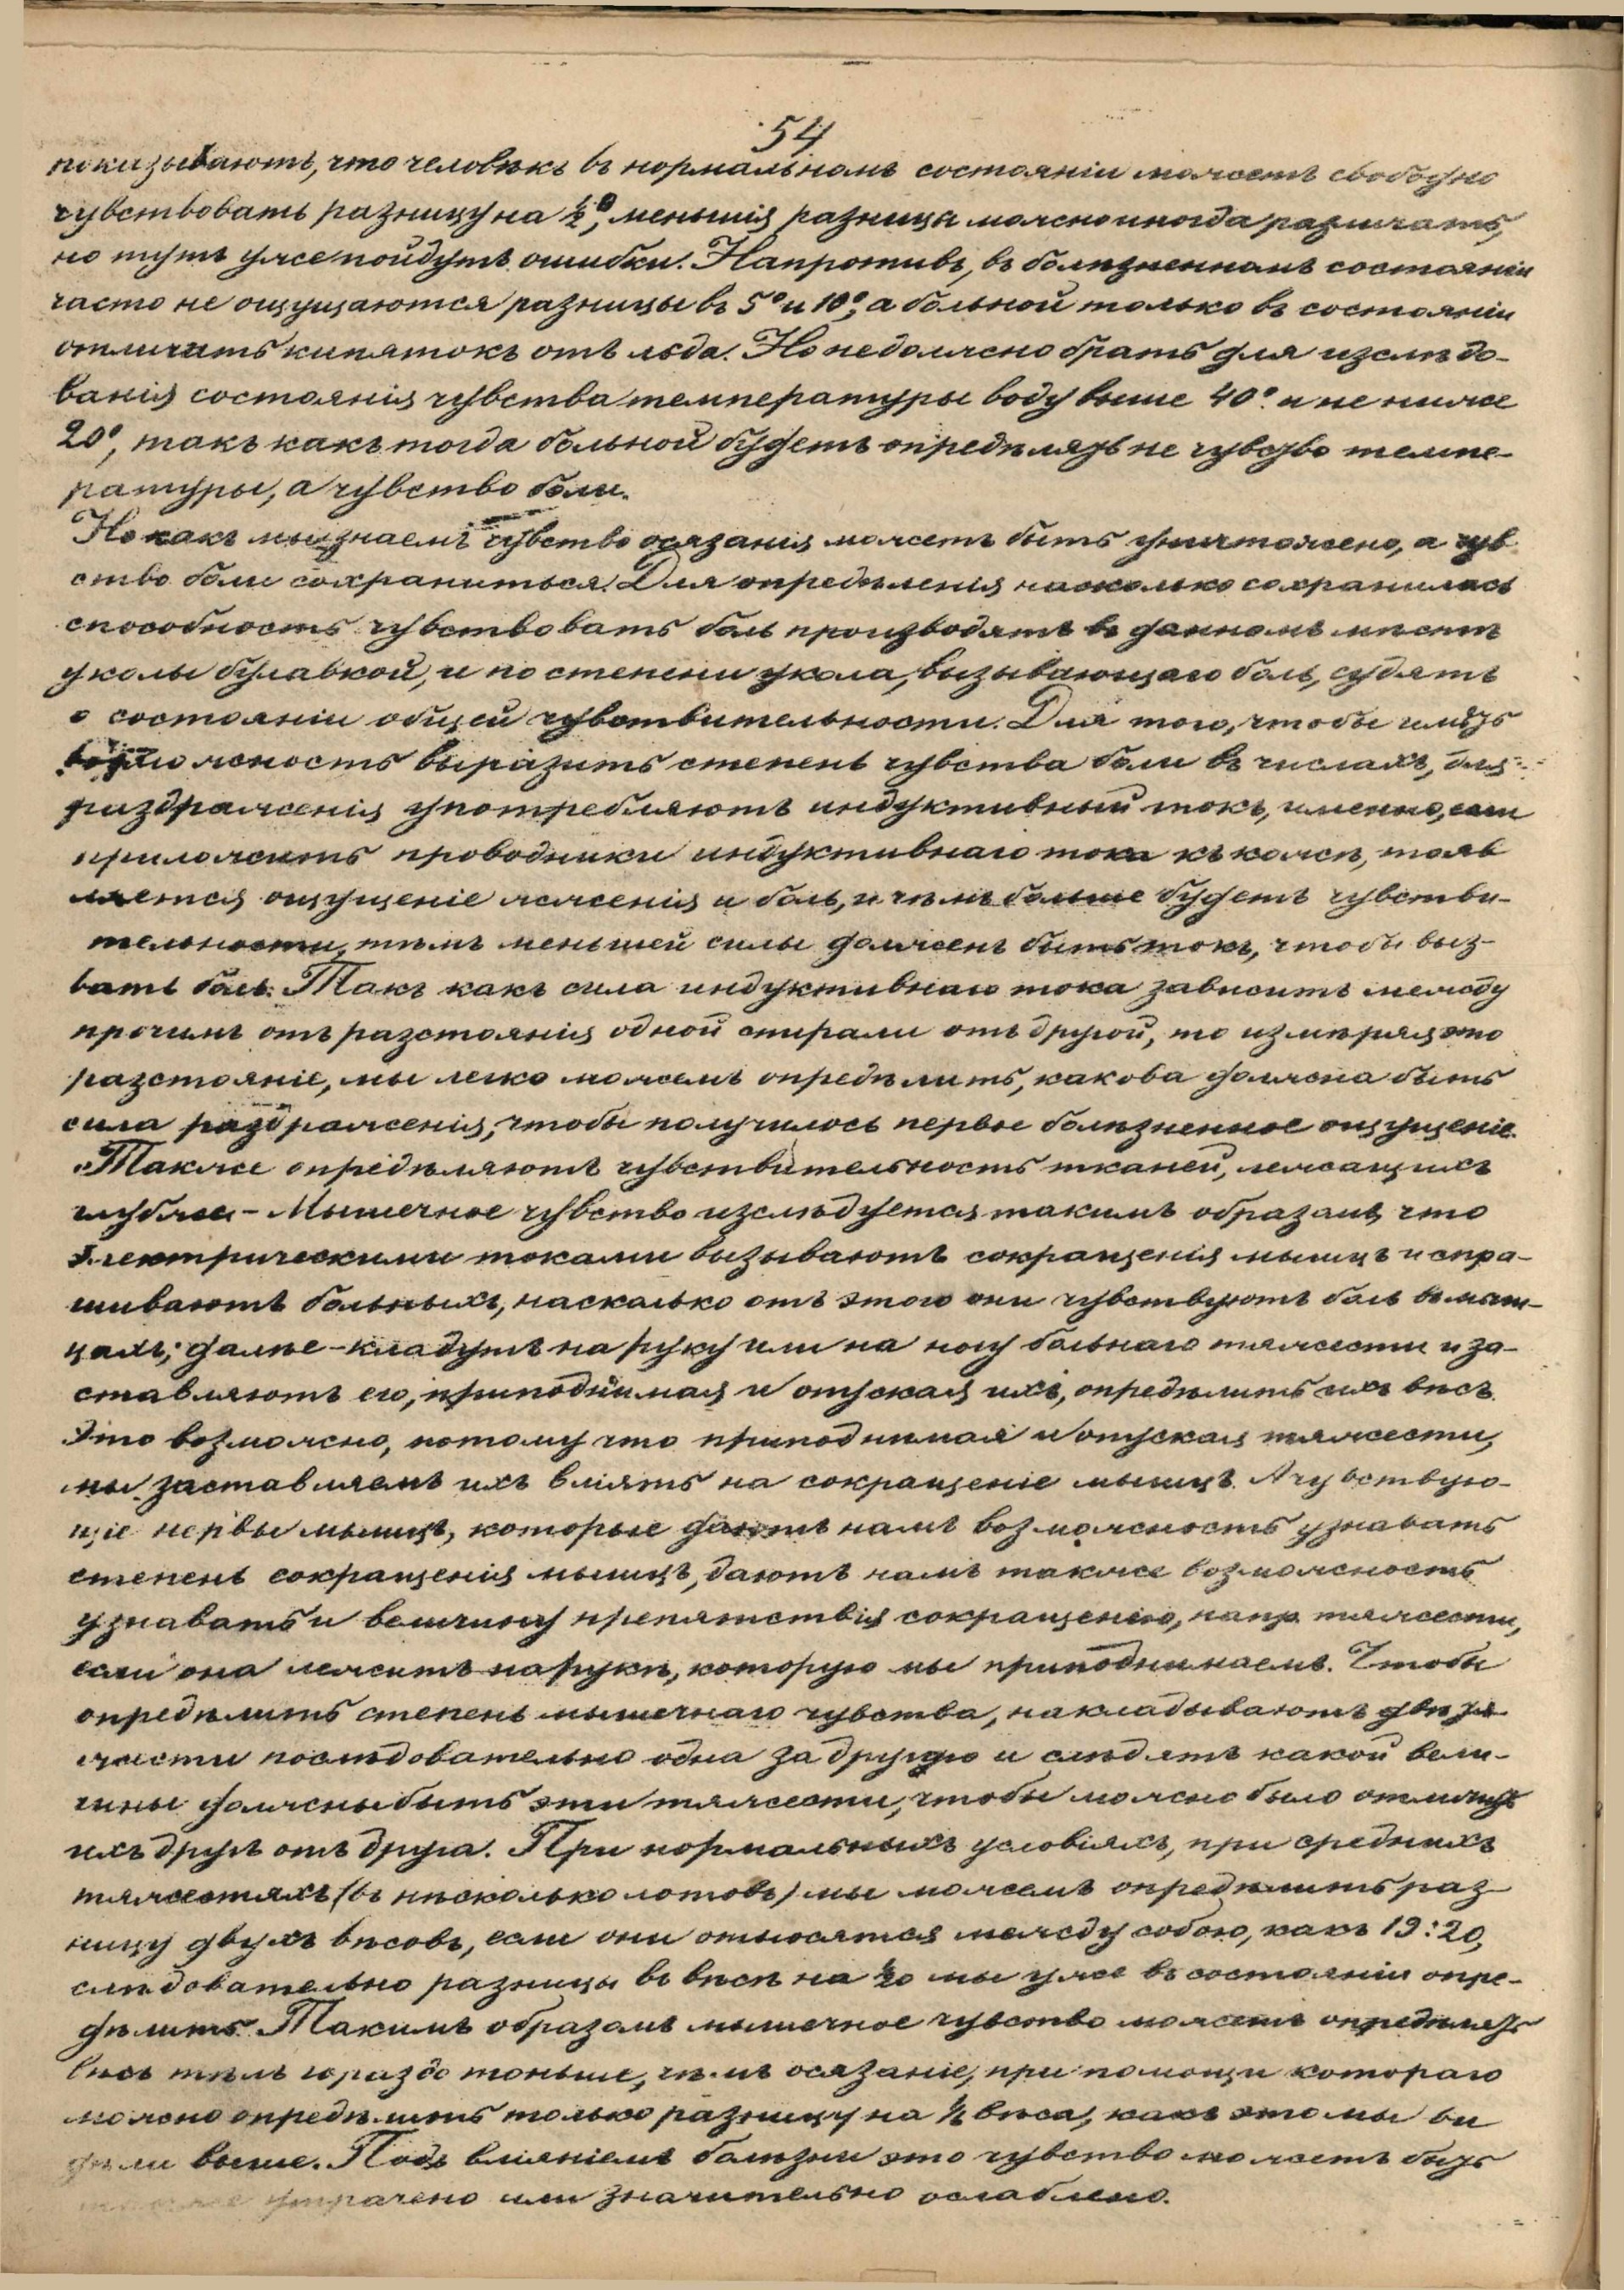 54
показываютъ, что человѣкъ въ нормальномъ состояніи можетъ свободно
чувствовать разницу на ½°, меньшія разницы можно иногда различать,
но тутъ уже пойдутъ ошибки. Напротивъ, въ болѣзненномъ состояніи
часто не ощущаются разницы въ 5° и 10°, а больной только въ состояніи
отличить кипятокъ отъ льда. Но не должно брать для изслѣдо-
ванія состоянія чувства температуры воду выше 40° и не ниже
20°, такъ какъ тогда больной будетъ опредѣлять не чувство темпе-
ратуры, а чувство боли.
Но какъ мы знаемъ чувство осязанія можетъ быть уничтожено, а чув
ство боли сохраниться. Для опредѣленія насколько сохранилась
способность чувствовать боль производятъ въ данномъ мѣстѣ
уколы булавкой, и по степени укола, вызывающаго боль, судятъ
о состояніи общей чувствительности. Для того, чтобы имѣть
возможность выразить степень чувства боли въ числахъ, для
раздраженія употребляютъ индуктивный токъ, именно, если
приложить проводники индуктивнаго тока къ кожѣ, то яв
ляется ощущеніе жженія и боль, и чѣмъ больше будетъ чувстви-
тельности, тѣмъ меньшей силы долженъ быть токъ, чтобы выз-
вать боль. Такъ какъ сила индуктивнаго тока зависитъ между
прочимъ отъ разстоянія одной спирали отъ другой, то измѣряя это
разстояніе, мы легко можемъ опредѣлить, какова должна быть
сила раздраженія, чтобы получилось первое болѣзненное ощущеніе.
Также опредѣляютъ чувствительность тканей, лежащихъ
глубже - Мышечное чувство изслѣдуется такимъ образомъ, что
электрическими токами вызываютъ сокращенія мышцъ и спра-
шиваютъ больныхъ, насколько отъ этого они чувствуютъ боль въ мыш-
цахъ; далѣе - кладутъ на руку или на ногу больнаго тяжести и за-
ставляютъ его, приподнимая и опуская ихъ, опредѣлить ихъ вѣсъ.
Это возможно, потому что приподнимая и опуская тяжести,
мы заставляемъ ихъ вліять на сокращеніе мышцъ. А чувствую-
щіе нервы мышцъ, которые даютъ намъ возможность узнавать
степень сокращенія мышцъ, даютъ намъ также возможность
узнавать и величину препятствія сокращенію, напр. тяжести,
если она лежитъ на рукѣ, которую мы приподнимаемъ. Чтобы
опредѣлить степень мышечнаго чувства, накладываютъ двѣ тя
жести послѣдовательно одна за другую и слѣдятъ какой вели-
чины должны быть эти тяжести, чтобы можно было отличить
ихъ другъ отъ друга. При нормальныхъ условіяхъ, при среднихъ
тяжестяхъ (въ нѣсколько лотовъ) мы можемъ опредѣлить раз
ницу двухъ вѣсовъ, если они относятся между собою, какъ 19:20,
слѣдовательно разницы въ вѣсѣ на 1/20 мы уже въ состояніи опре-
дѣлить. Такимъ образомъ мышечное чувство можетъ опредѣлять
вѣсъ тѣлъ гораздо тоньше, чѣмъ осязаніе, при помощи котораго
можно опредѣлить только разницу на вѣса, какъ это мы ви
дѣли выше. Подъ вліяніемъ болѣзни это чувство можетъ быть
также утрачено или значительно ослаблено.